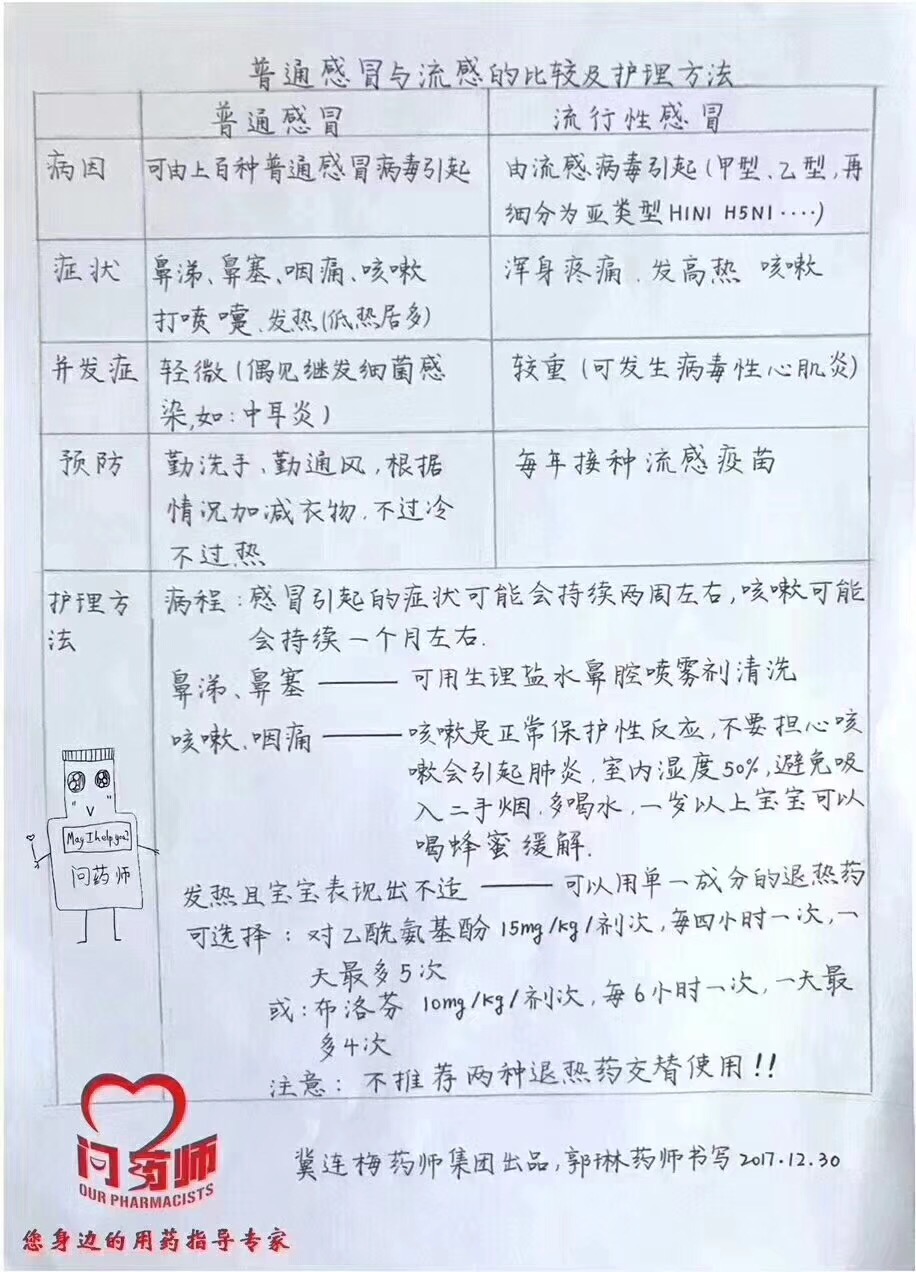 普通感冒与流感的比较及护理方法
普通感冒
流行性感冒
病因
可由上百种普通感冒病毒引起
由流感病毒引起(甲型、乙型,再
细分为亚类型H1N1 H5N1····)
症状
鼻涕、鼻塞、咽痛、咳嗽
打喷嚏、发热(低热居多)
浑身疼痛、发高热 咳嗽
并发症
轻微(偶见继发细菌感
染,如:中耳炎)
较重(可发生病毒性心肌炎)
预防
勤洗手、勤通风,根据
情况加减衣物、不过冷
不过热
每年接种流感疫苗
护理方
法
病程:感冒引起的症状可能会持续两周左右,咳嗽可能
会持续一个月左右.
鼻涕、鼻塞——可用生理盐水鼻腔喷雾剂清洗
咳嗽、咽痛——咳嗽是正常保护性反应,不要担心咳
嗽会引起肺炎.室内湿度50%,避免吸
入二手烟.多喝水,一岁以上宝宝可以
喝蜂蜜缓解.
发热且宝宝表现出不适——可以用单一成分的退热药
可选择:对乙酰氨基酚15mg/kg/剂次,每四小时一次,一
天最多5次
或:布洛芬 10mg/kg/剂次,每6小时一次,一天最
多4次
注意:不推荐两种退热药交替使用!!
May I help you?
问药师
问药师
OUR PHARMACISTS
冀连梅药师集团出品,郭琳药师书写2017.12.30
您身边的用药指导专家